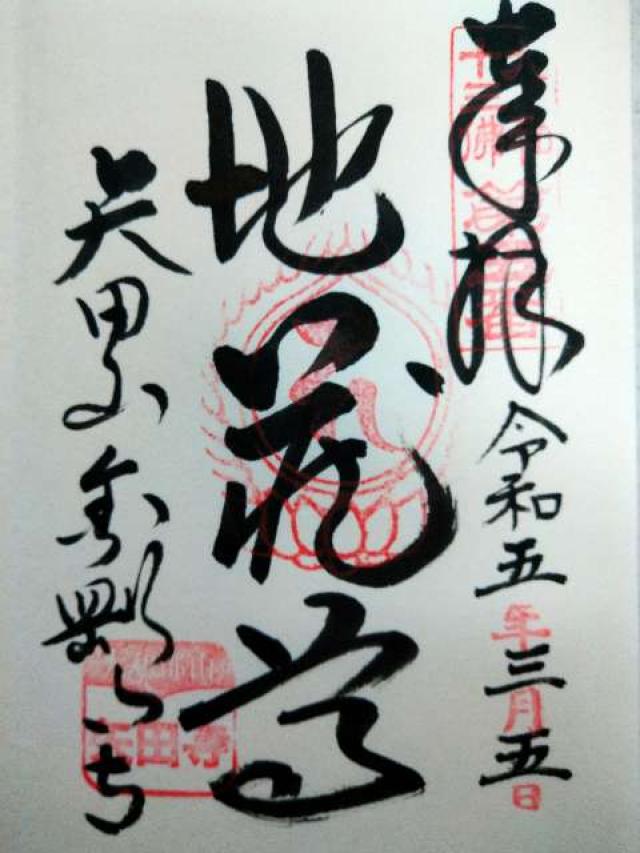 奉拝 令和五年三月五日
十三佛
地蔵尊
矢田山金剛山寺
矢田寺